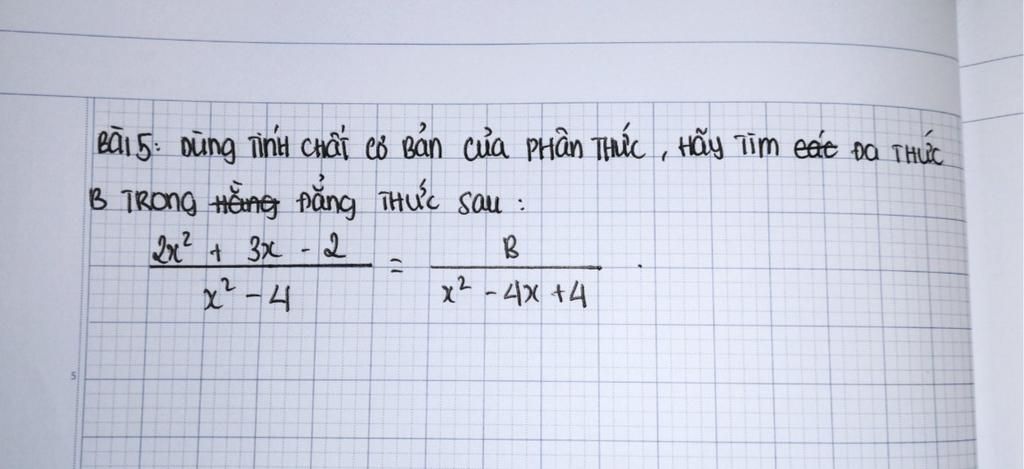 Bài 5: Dùng tính chất cơ bản của phân thức, hãy tìm các đa thức
B trong hằng đẳng thức sau:
2x² + 3x - 2 / x² - 4 = B / x² - 4x + 4 .
5